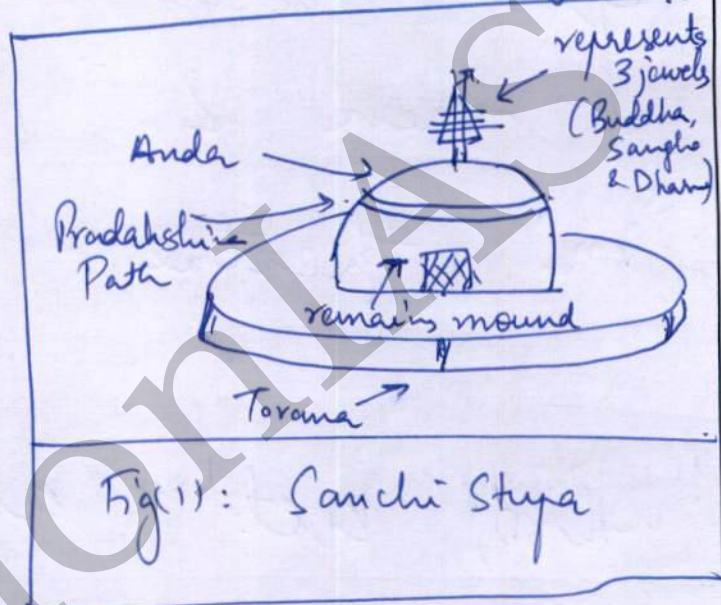 represents
3 jewels
(Buddha,
Sangha
& Dharm)
Anda
Pradakshina
Path
remains mound
Torana
Fig(1): Sanchi Stupa